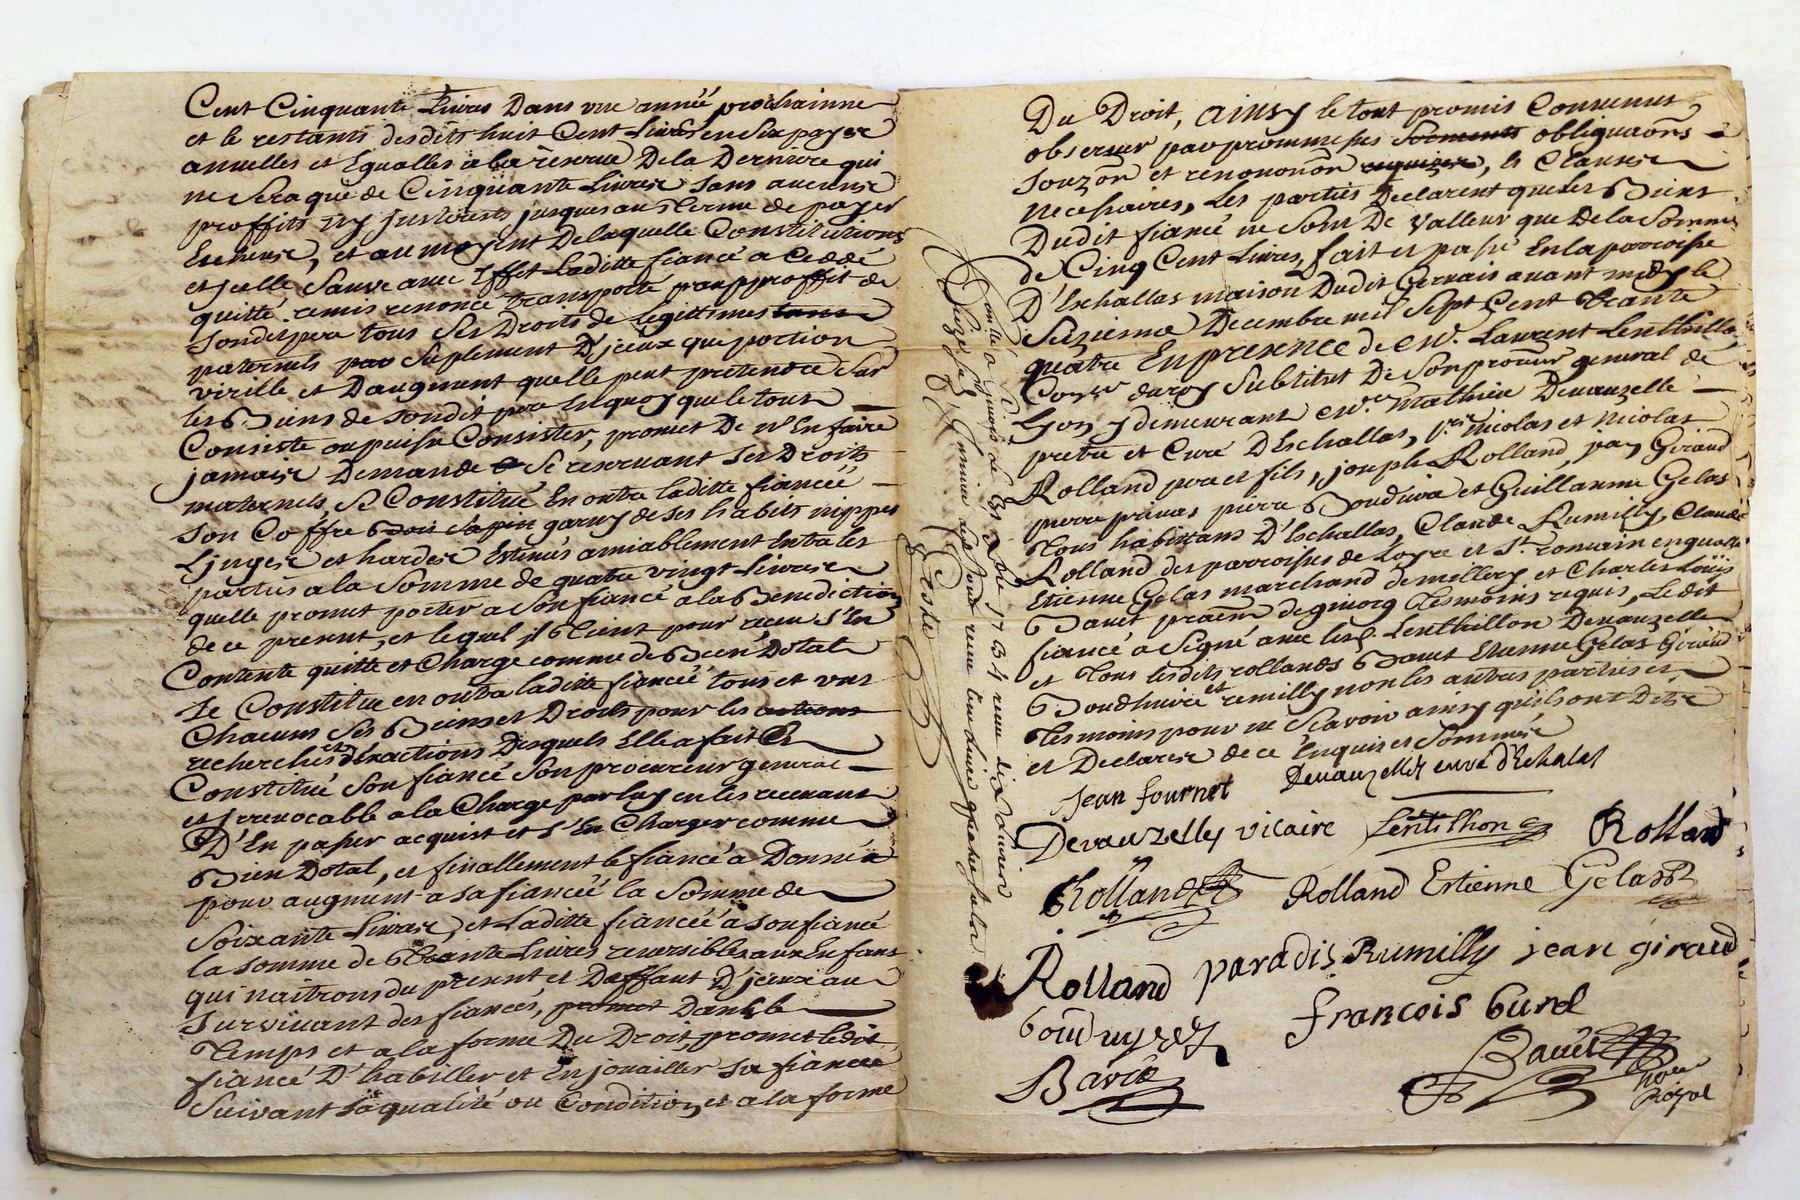 Cent Cinquante Livres Dans une année prochainne
et le restants desdits huit Cent Livres en Six payes
annuelles et Egualles a la reserve De la Derniere qui
ne Sera que de Cinquante Livres Sans aucuns
proffits ny Interests jusques au Terme de payes
Escheus, et au moyent De laquelle Constitutions
et jcelle Sauve avec Effet Laditte fiancé a Ceddé
quitté remis renoncé transporté pour proffit de
Sondit pere tous Ses Droits de legittimes
paternels par Suplement D'jceux que portion
virille et Daugment quelle peut pretendre Sur
les Biens de Sondit pere En quoy que le tout
Consiste ou puisse Consister, promet De n'En faire
jamais Demande Se reservant Ses Droits
maternels, Se Constitué En outre laditte fiancée
Son Coffre Bois Sapin garny de Ses habits nippes
Linges et hardes Estimés amiablement Entre les
parties a la Somme de quatre vingt Livres
quelle promet porter a Son fiancé a la Benediction
de ce present, et lequel jl Tient pour receu S'En
Contente quitte et Charge comme de Bien Dotal
Se Constitue en outre laditte fiancée tous et uns
Chacuns Ses Biens et Droits pour les actions
recherches et Exactions Desquels Elle a fait Et
Constitué Son fiancé Son procureur general
et jrrevocable a la Charge par luy en les recevant
D'En passer acquist et S'En Charger comme
Bien Dotal, et finallement le fiancé a Donné
pour augment a Sa fiancée la Somme de
Soixante Livres et Laditte fiancée a Son fiancé
la Somme de Trante Livres reversibles aux Enfans
qui naitrons du present et Deffaut D'jceux au
Survivant des fiancés, promet Dans le
Temps et a la forme Du Droit, promet ledit
fiancé D'habiller et Enjouailler Sa fiancée
Suivant Sa qualité ou Condition, et a la forme
Controllé a Givors le 31 xbre 1734 receu dix Livres
Coste
Du Droit, Ainsy le tout promis Convenus
observer par prommesses Serments obliguaõns
Souzõn et renonõn requises, & Clauses
necessaires, Les parties Declarent que les Biens
Dudit fiancé ne Sont De valleur que De la Somme
de Cinq Cent Livres, fait et passé En la parroisse
D'Eschallas maison Dudit Gervais avant midy le
Seizieme Decembre mil Sept Cent Trante
quatre En presence de Mr. Laurent Lentillon
Consr. du roy Substitut De Son procur. general de
Lyon y demeurant Mre. Mathieu Devauzelle
pretre et Curé D'Eschallas, Nicolas et Nicolas
Rolland pere et fils, joseph Rolland, jean Giraud
pierre privas pierre Bouduire et Guillaume Gelas
Tous habittans D'Eschallas, Claude Rumilly, Claude
Rolland des parroisses de Loyre et St. romain en
Etienne Gelas marchand de millery et Charles Louis
Bavet praēn de givors Tesmoins requis, Ledit
fiancé a Signé avec les S. Lentillon Devauzelle
et Tous lesdits rollands Bavet Etienne Gelas Giraud
Boudhuire et remilly non les autres parties et
Tesmoins pour ne Scavoir ainsy qu'ils ont Dit
et Declarer de ce Enquis et Sommés
Jean fournet Devauzelle curé d'Echalas
Devauzelly vicaire Lentillon Rolland
Rolland Rolland Estienne Gelas
Rolland paradis Rumilly jean giraud
françois burel
Bavet
Royal